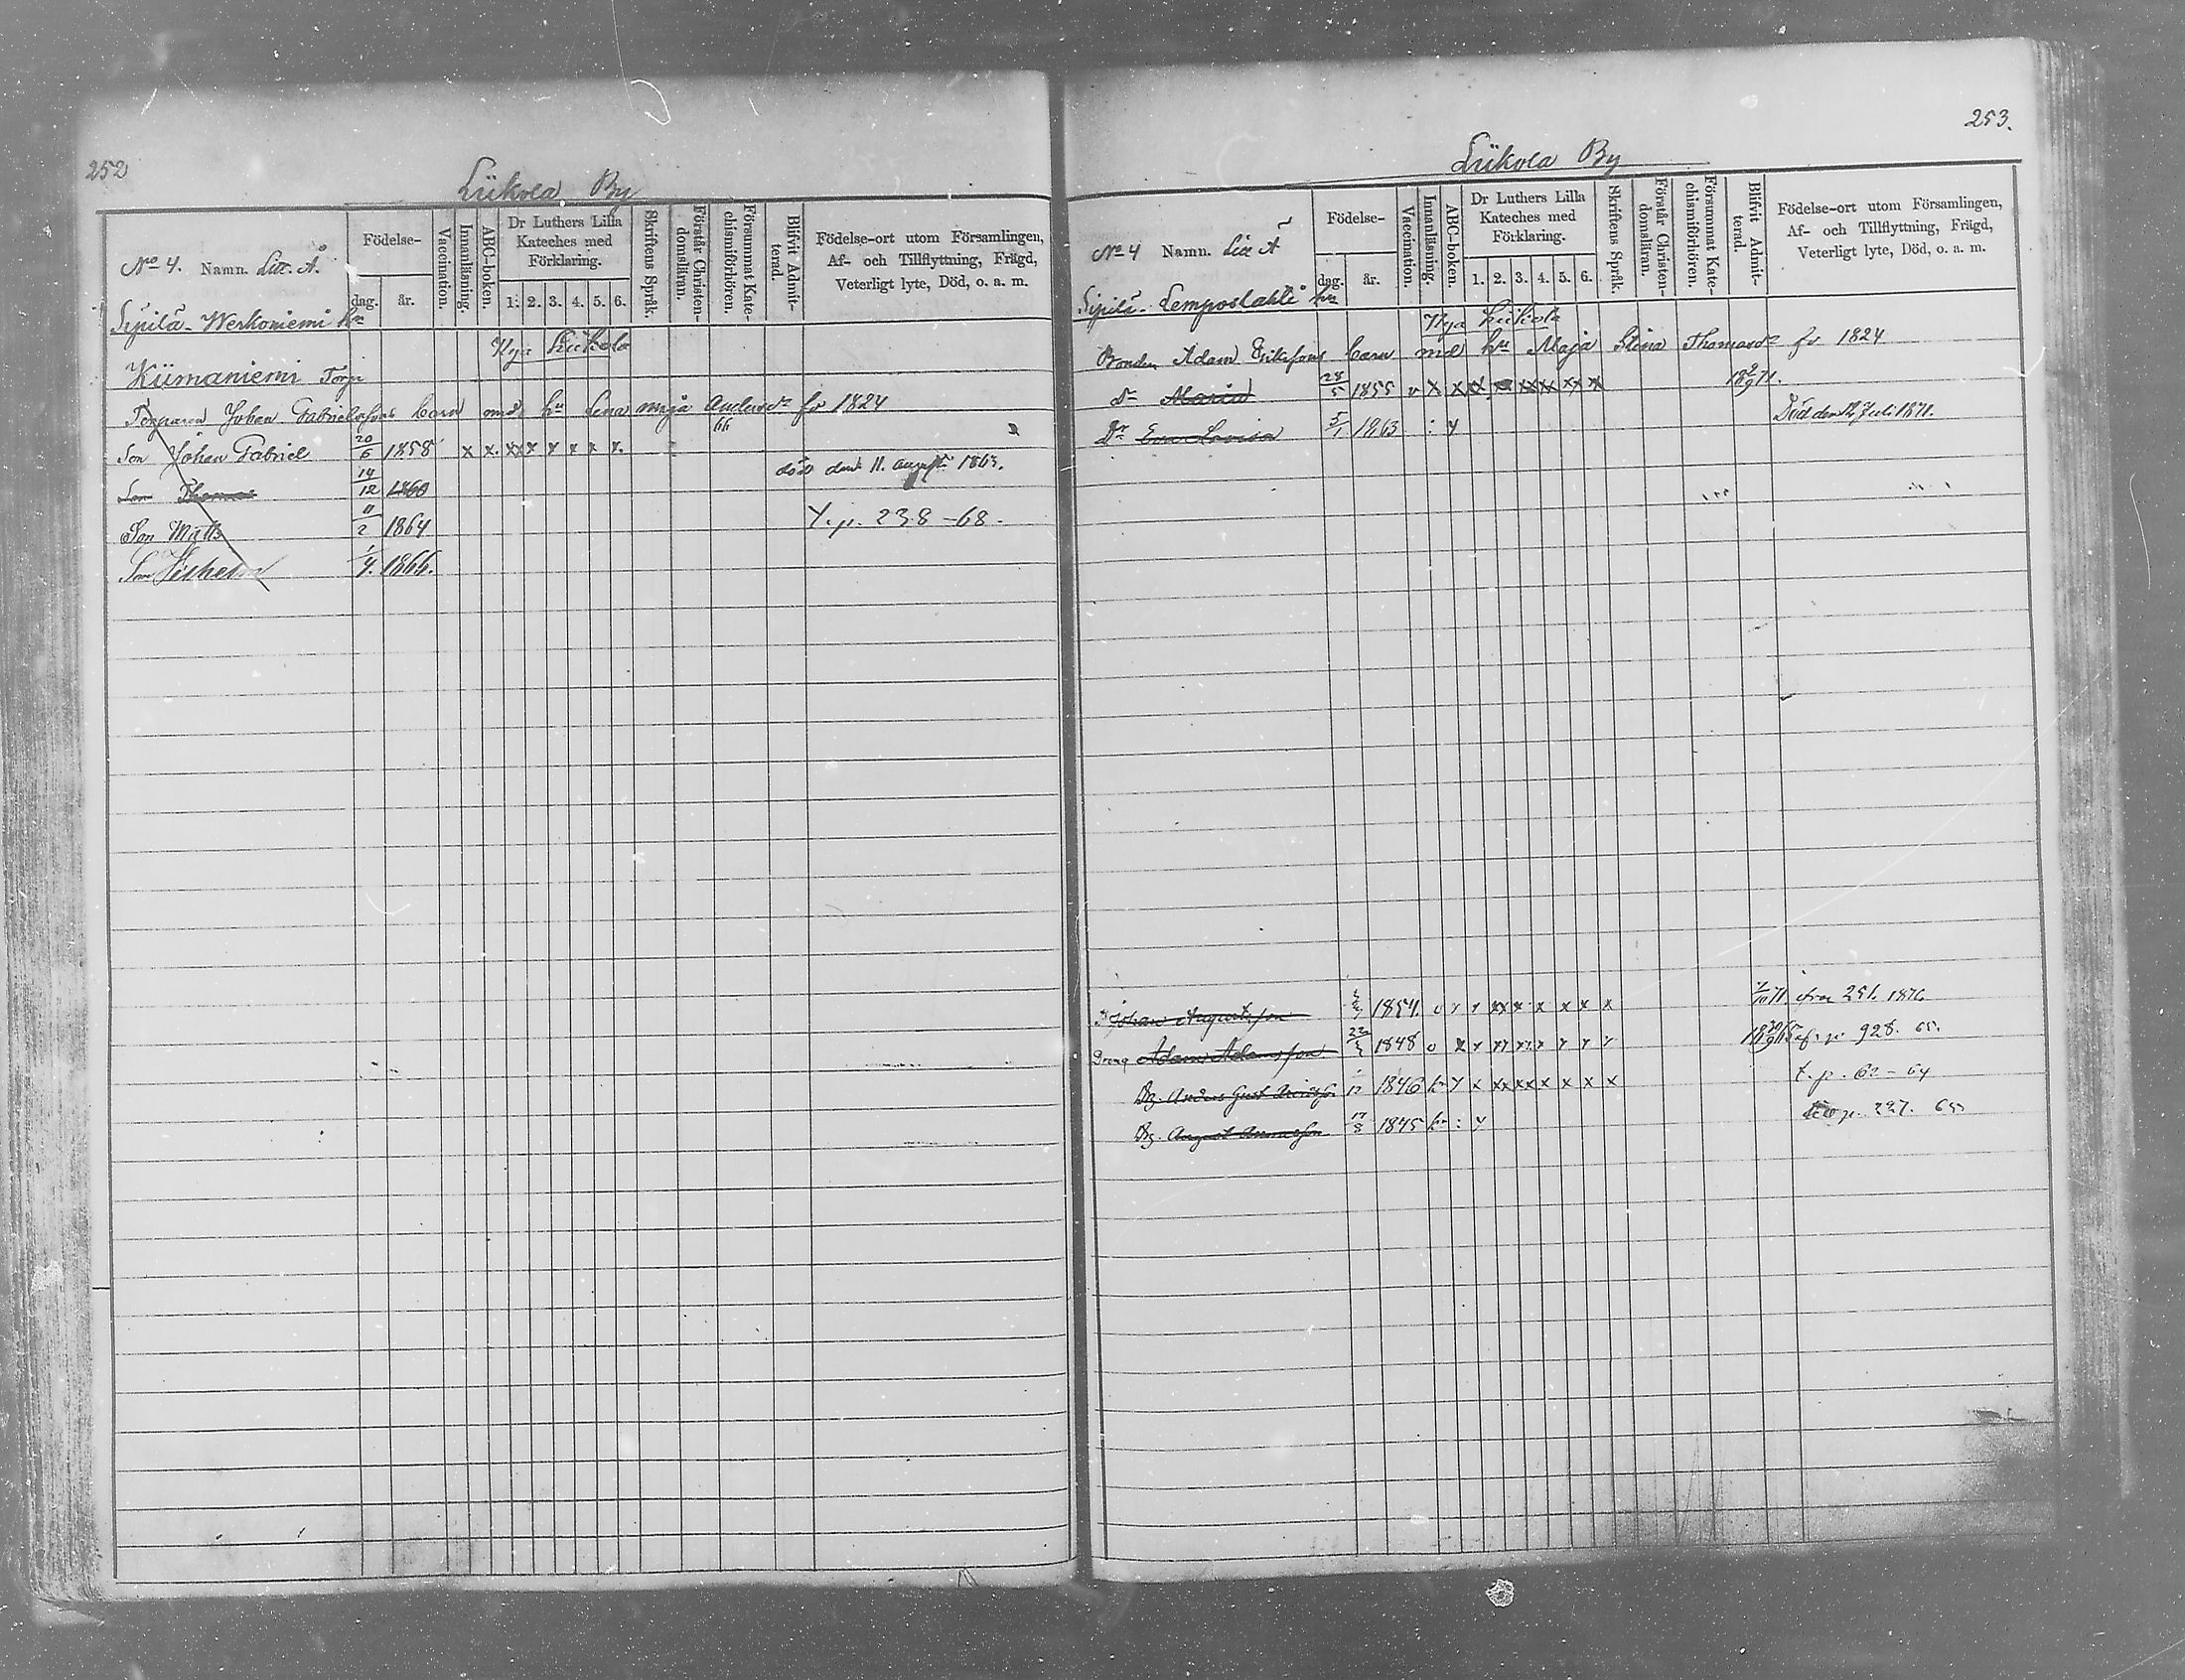 252
Liikola By
No 4. Namn. Litt. A.
Födelse-
dag. år.
Vaccination.
Innanläsning.
ABC-boken.
Dr Luthers Lilla Kateches med Förklaring.
1. 2. 3. 4. 5. 6.
Skriftens Språk.
Förstår Christendomsläran.
Försummat Katechismiförhören.
Blifvit Admitterad.
Födelse-ort utom Församlingen, Af- och Tillflyttning, Frägd, Veterligt lyte, Död, o. a. m.
Sipilä-Werkoniemi hn
Nya Liikola
Kiimaniemi Torp
Torparen Johan Gabrielssons barn med hu Lena Maja Andersdr fr 1824
66
Son Johan Gabriel 20/6 1858 x x. xx x x x x x.
Son Thomas 14/12 1860 död den 11. augusti 1863.
Son Matts 11/2 1864 T.p. 238-68.
Son Vilhelm 1/4. 1866.
253.
Liikola By
No 4 Namn. Litt A
Födelse-
dag. år.
Vaccination.
Innanläsning.
ABC-boken.
Dr Luthers Lilla Kateches med Förklaring.
1. 2. 3. 4. 5. 6.
Skriftens Språk.
Förstår Christendomsläran.
Försummat Katechismiförhören.
Blifvit Admitterad.
Födelse-ort utom Församlingen, Af- och Tillflyttning, Frägd, Veterligt lyte, Död, o. a. m.
Sipilä-Lemposlahti hn
Nya Liikola
Bonden Adam Erikssons barn med hu Maja Stina Thomasdr fr 1824
Dr Maria 28/5 1855 v x xx x xxxx xx x 18 2/9 71.
Dr Eva Lovisa 5/1 1863 : y Död den 12 Juli 1871.
Johan Augustsson 1854. xx x x x x x 71 från 251. 1876
Dräng Adam Adamsson 22 1848 928. 65.
Dg. Anders Gust. 12 1846 x xxxx x x x x t. p. 62-64
Dg. August 17/8 1845 : y p. 227. 65